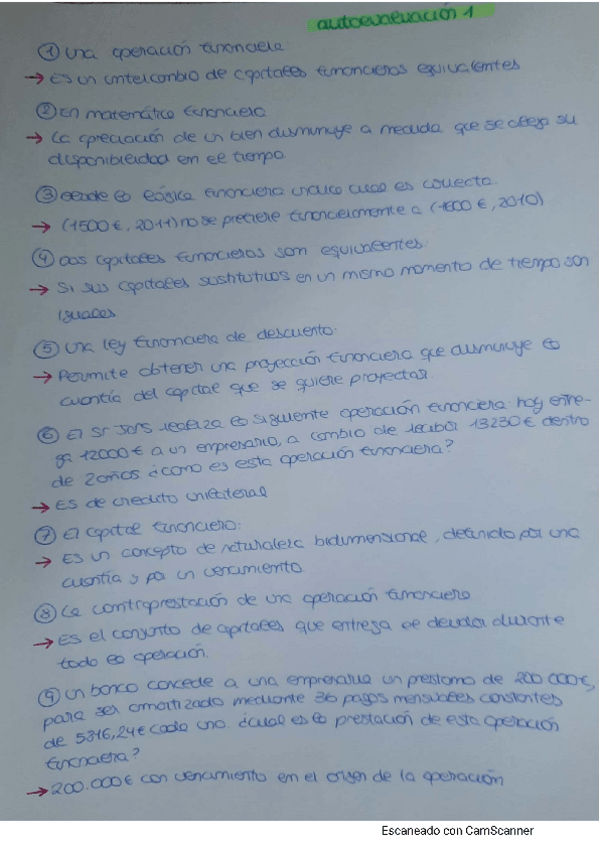 autoevaluación 1
① Una operación financiera:
→ Es un intercambio de capitales financieros equivalentes
② En matemática financiera
→ La apreciación de un bien disminuye a medida que se aleja su
disponibilidad en el tiempo
③ desde la lógica financiera indica cual es correcta.
→ (1500€, 2011) no se prefiere financieramente a (1600€, 2010)
④ dos capitales financieros son equivalentes:
→ Si sus capitales sustitutivos en un mismo momento de tiempo son
iguales
⑤ Una ley financiera de descuento:
→ Permite obtener una proyección financiera que disminuye la
cuantía del capital que se quiere proyectar.
⑥ El sr. realiza la siguiente operación financiera: hoy entre-
ga 12000€ a un empresario, a cambio de recibir 13230€ dentro
de 2 años ¿como es esta operación financiera?
→ Es de credito unilateral
⑦ El capital financiero:
→ Es un concepto de naturaleza bidimensional, definido por una
cuantía y por un vencimiento
⑧ La contraprestación de una operación financiera
→ Es el conjunto de capitales que entrega el deudor durante
toda la operación.
⑨ Un banco concede a una empresaria un prestamo de 200 000€,
para ser amortizado mediante 36 pagos mensuales constantes
de 5816,24€ cada uno. ¿cual es la prestación de esta operación
financiera?
→ 200.000€ con vencimiento en el origen de la operación
Escaneado con CamScanner